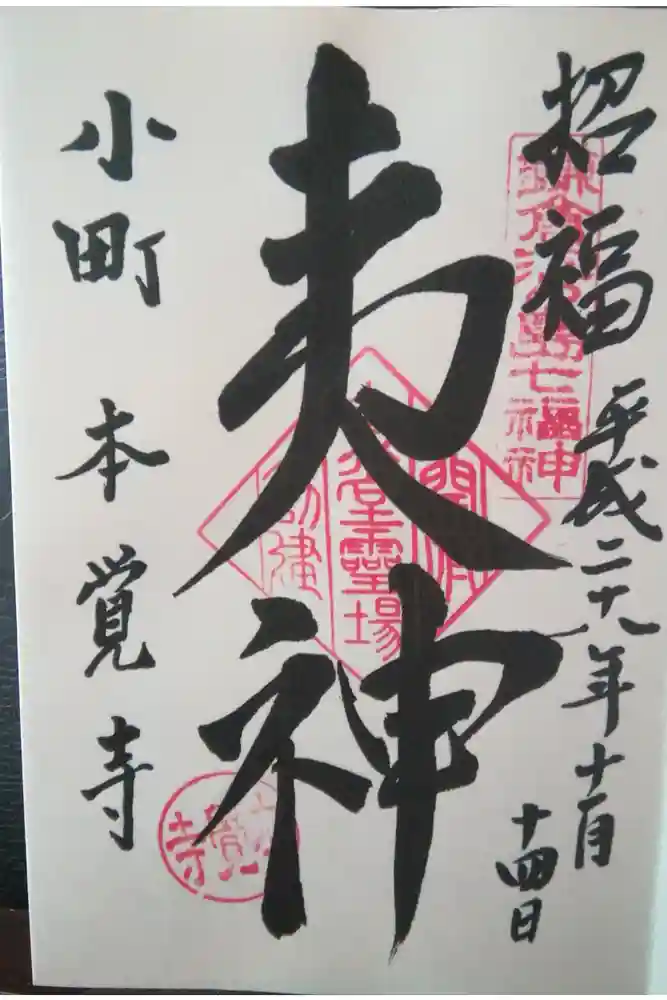 招福
平成二十九年十一月
十四日
夷神
小町 本覚寺
鎌倉江の島七福神
本覺寺